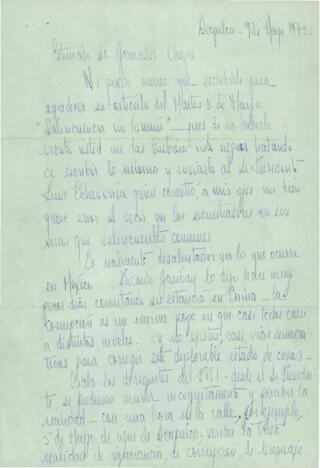 Acapulco - 9 de Mayo 1973-
Estimado Sr. Granados Chapa
No puedo menos que escribirle para
agradecer su artículo del Martes 8 de Mayo
"Delincuencia no Común" - pues de no haberlo
escrito usted me las hubiera visto negras tratando
de escribir lo mismo y enviarlo al Sr Presidente
Luis Echeverría quien cometió, a mis ojos, un bien
grave error al decir que los secuestradores no son
mas que delincuentes comunes.
Es realmente desalentador ver lo que ocurre
en México. Ricardo Garibay lo dijo hace muy
pocos días comentando su estancia en China - La
corrupción es un enorme pozo en que casi todos caen
a distintos niveles... y no existen casi vías democrá-
ticas para corregir este deplorable estado de cosas -
Ojala los dirigentes del PRI - desde el Sr Presiden-
te, se pudieran mover incognitamente y percibir la
realidad - con una hora en la calle, por ejemplo,
5 de Mayo de aquí de Acapulco, verían la triste
realidad de ignorancia, de corrupción, de lenguaje